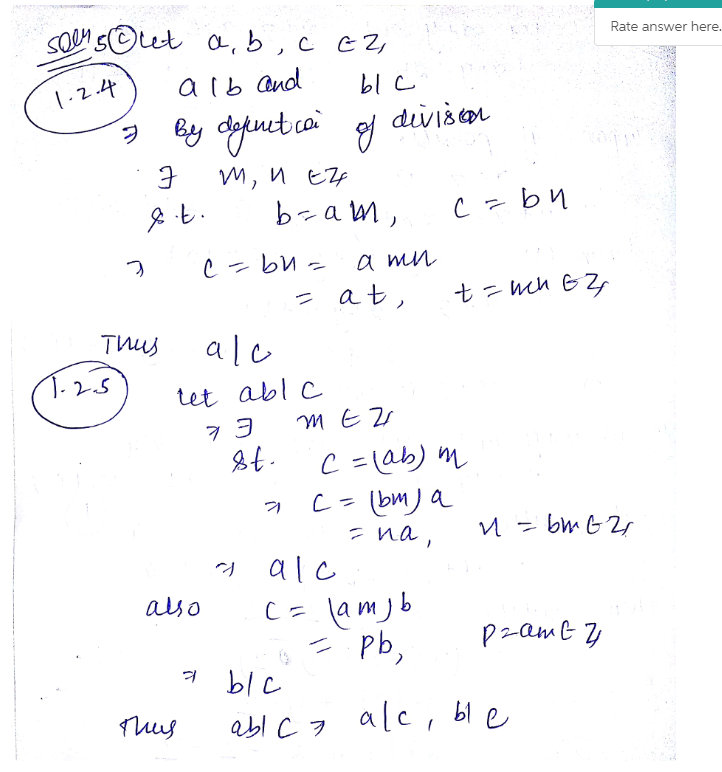 Rate answer here.
Soln 5 ⓒ Let a, b, c ∈ Z,
1.2.4 a | b and b | c
⇒ By definition of division
∃ m, n ∈ Z
s.t. b = am, c = bn
⇒ c = bn = a mn
= at, t = mn ∈ Z
Thus a | c
1.2.5 Let ab | c
⇒ ∃ m ∈ Z
st. c = (ab) m
⇒ c = (bm) a
= na, n = bm ∈ Z
⇒ a | c
also c = (am) b
= pb, p = am ∈ Z
⇒ b | c
Thus ab | c ⇒ a | c, b | c